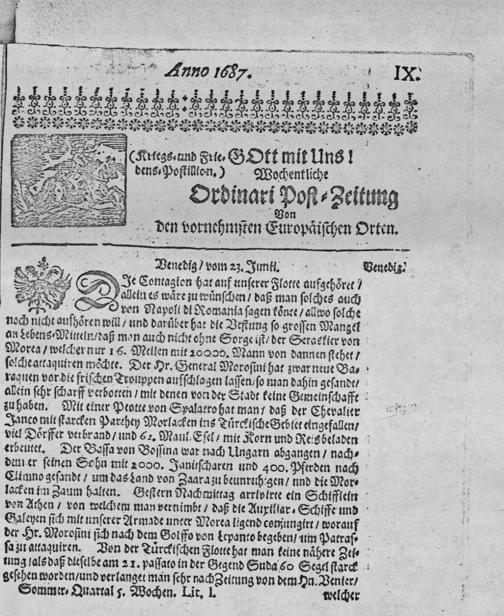 Anno 1687.
IX.
(Kriegs-und Frie- GOtt mit Uns!
dens-Postillion,) Wochentliche
Ordinari Post-Zeitung
Von
den vornehmsten Europäischen Orten.
Venedig/ vom 23. Junii.
Venedig.
DIe Contagion hat auf unserer Flotte aufgehöret/
allein es wäre zu wünschen/ daß man solches auch
von Napoli di Romania sagen könte/ allwo solche
noch nicht aufhören will/ und darüber hat die Vestung so grossen Mangel
an Lebens-Mitteln/ daß man auch nicht ohne Sorge ist/ der Seraskier von
Morea/ welcher nur 16. Meilen mit 20000. Mann von dannen stehet/
solche attaquiren möchte. Der Hr. General Morosini hat zwar neue Ba-
raquen vor die frischen Trouppen aufschlagen lassen/ so man dahin gesandt/
allein sehr scharff verbotten/ mit denen von der Stadt keine Gemeinschafft
zu haben. Mit einer Peotte von Spalatro hat man/ daß der Chevalier
Janco mit starcken Parthey Morlacken ins Türckische Gebiet eingefallen/
viel Dörffer verbrand/ und 62. Maul-Esel/ mit Korn und Reis beladen
erbeutet. Der Bassa von Bossina war nach Ungarn abgangen/ nach-
dem er seinen Sohn mit 2000. Janitscharen und 400. Pferden nach
Climno gesandt/ um das Land von Zaara zu beunruhigen/ und die Mor-
lacken im Zaum halten. Gestern Nachmittag arrivirte ein Schifflein
von Athen/ von welchem man vernimbt/ daß die Auxiliar-Schiffe und
Galeyen sich mit unserer Armade unter Morea ligend conjungirt/ worauf
der Hr. Morosini sich nach dem Golffo von Lepanto begeben/ um Patras-
sa zu attaquiren. Von der Türckischen Flotte hat man keine nähere Zei-
tung/ als daß dieselbe am 21. passato in der Gegend Suda 60 Segel starck
gesehen worden/ und verlanget man sehr nach Zeitung von dem Hn. Venier/
Sommer-Quartal 5. Wochen. Lit. l.
welcher